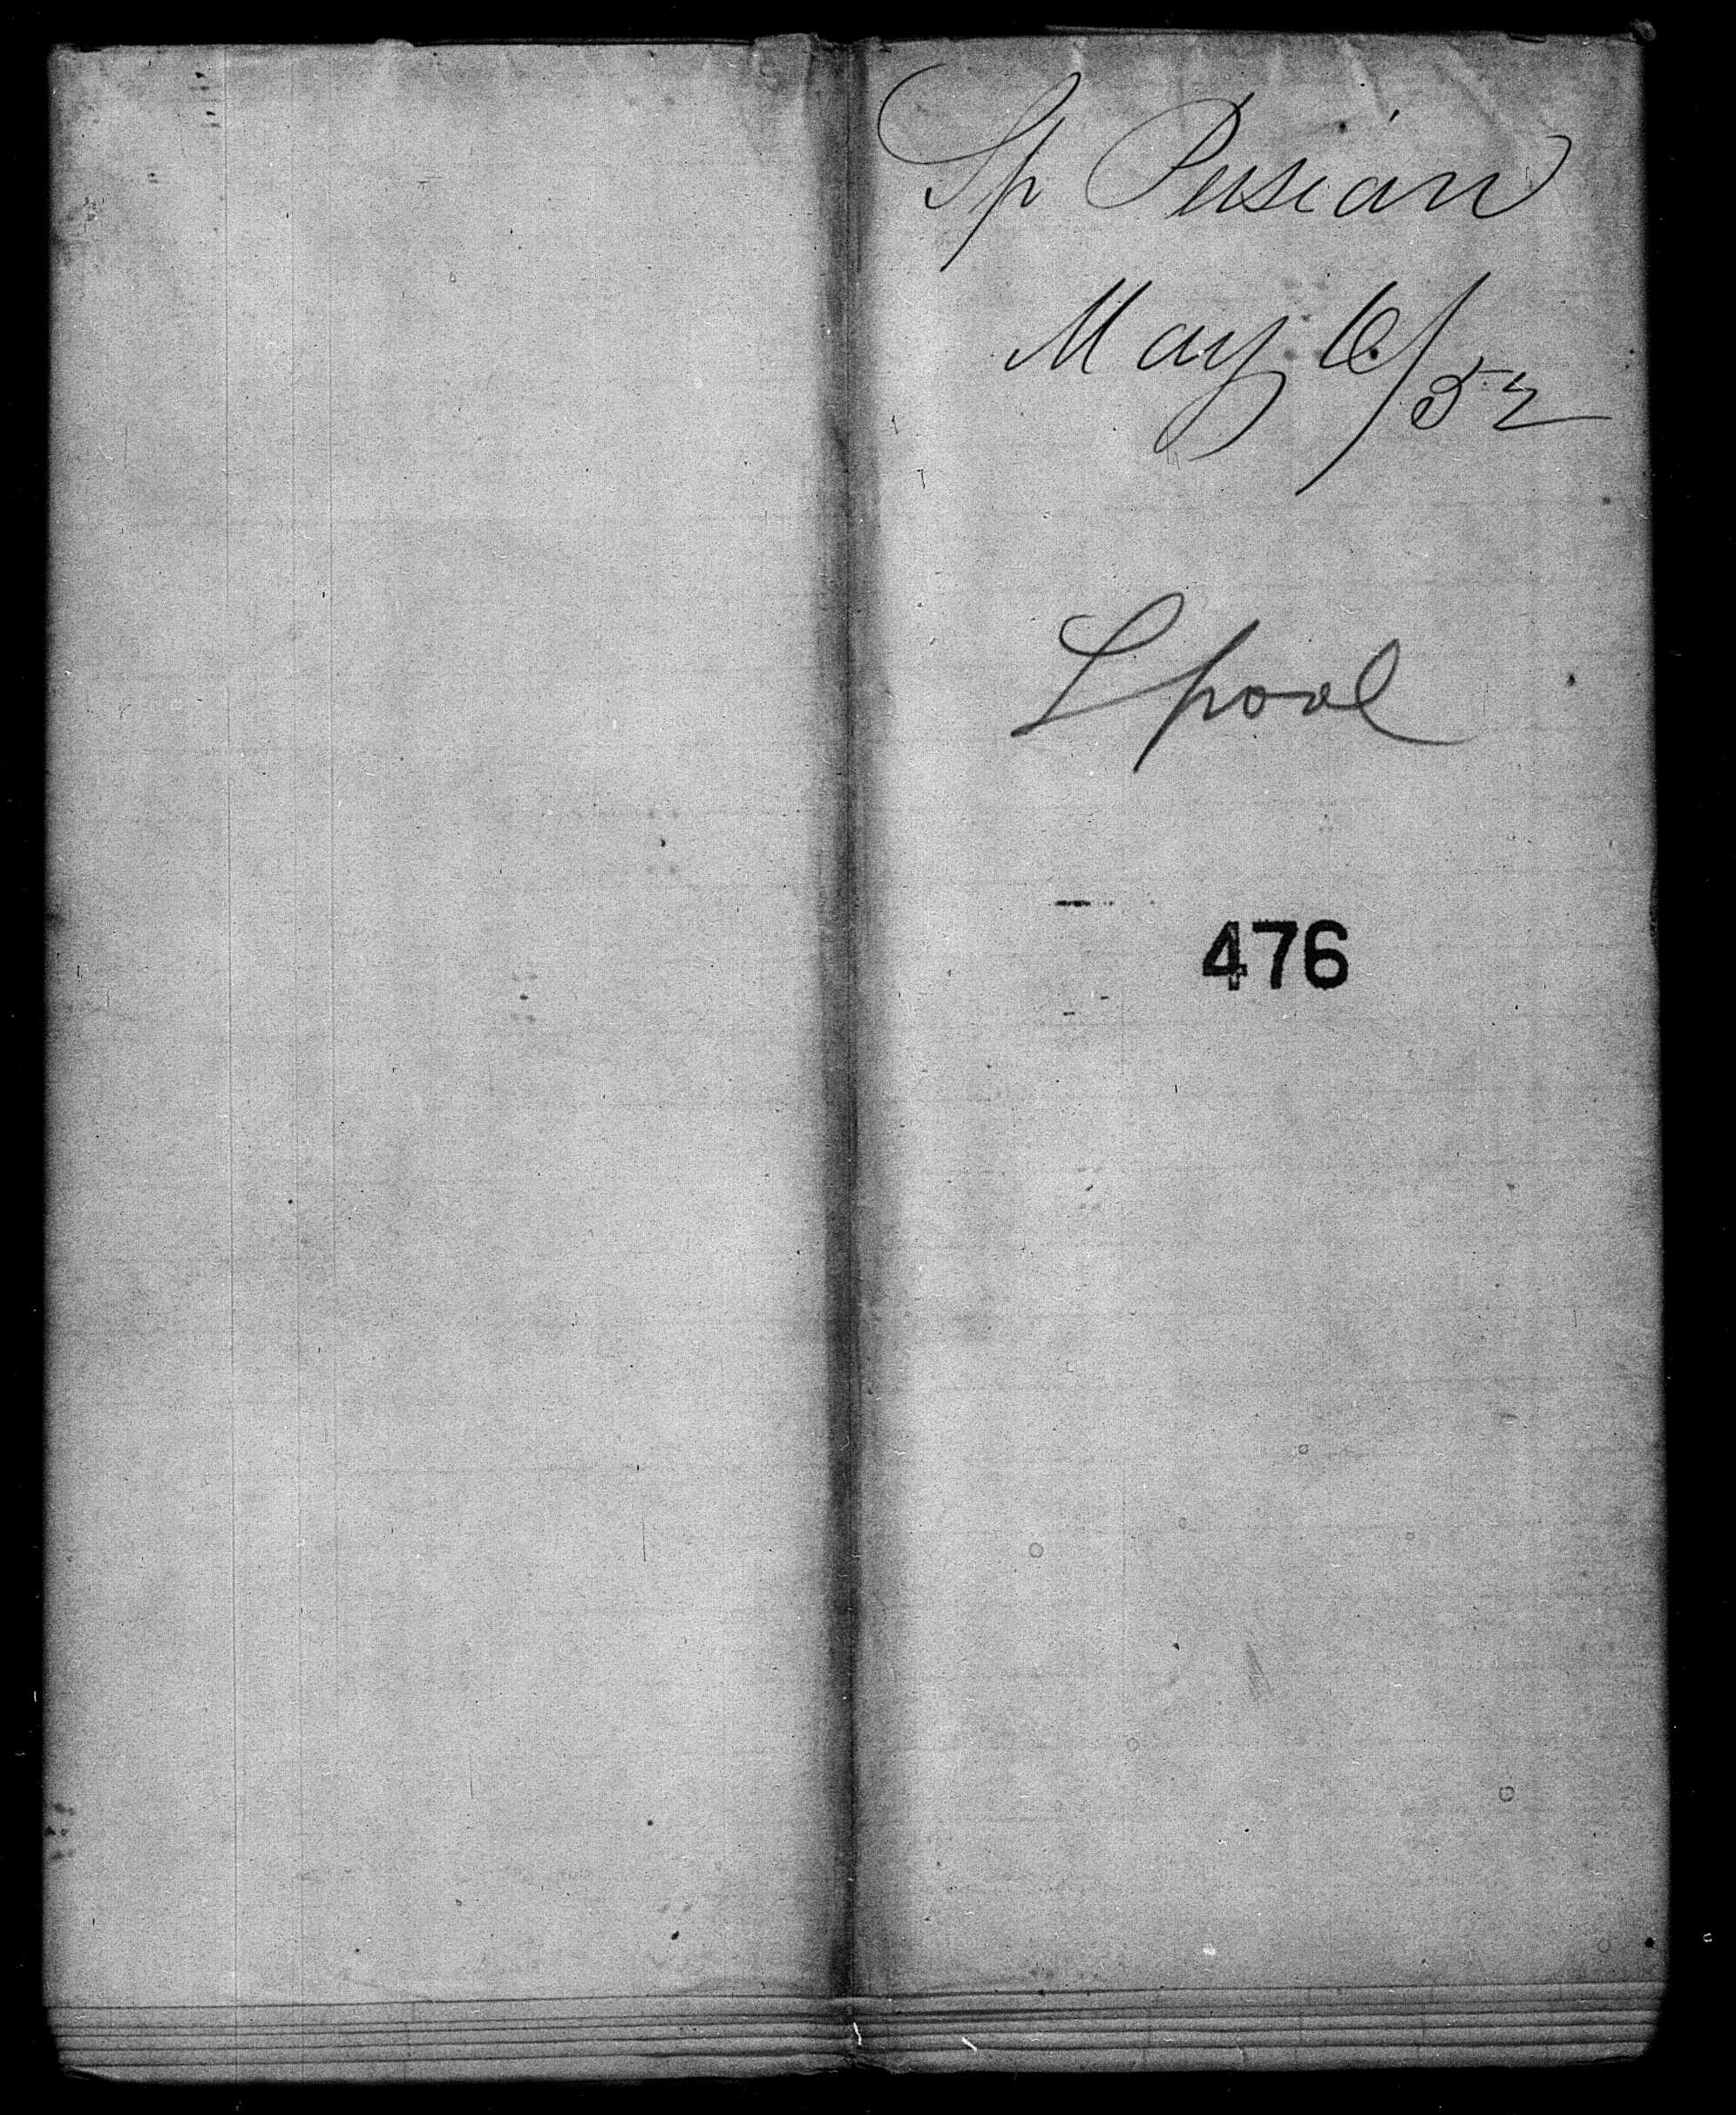 Sp Persian
May 6/52
Lpool
476